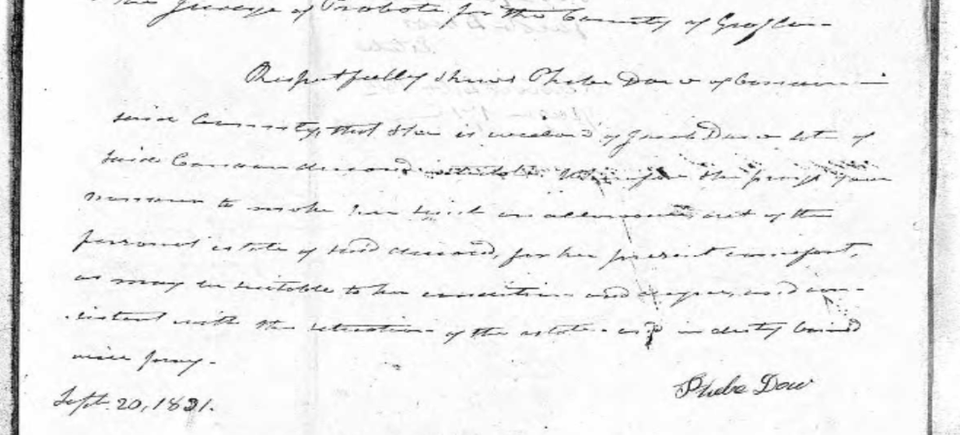 the Judge of Probate for the County of Grafton
Respectfully shews Phebe Dow of Canaan in
said County, that she is widow of Jacob Dow late of
said Canaan deceased intestate. Wherefore she prays your
to make her such an allowance out of the
personal estate of said deceased, for her present comfort,
as may be suitable to her condition and degree, and con-
sistent with the situation of the estate as in duty bound
will pray.
Phebe Dow
Sept. 20, 1831.